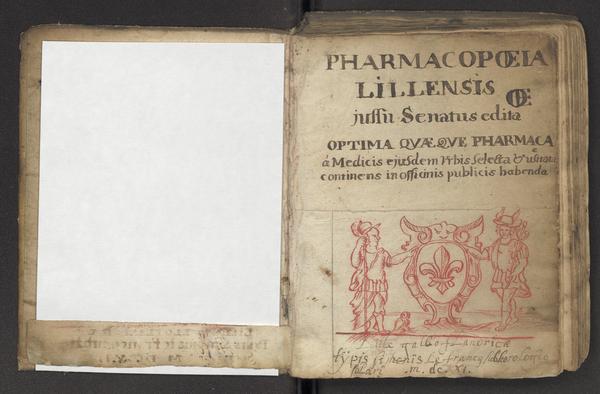 PHARMACOPŒIA
LILLENSIS
Œ
jussu Senatus edita
OPTIMA QVÆQVE PHARMACA
á Medicis ejusdem Vrbis selecta & usitata
continens in officinis publicis habenda
typis Le francq
m. dc. XL.